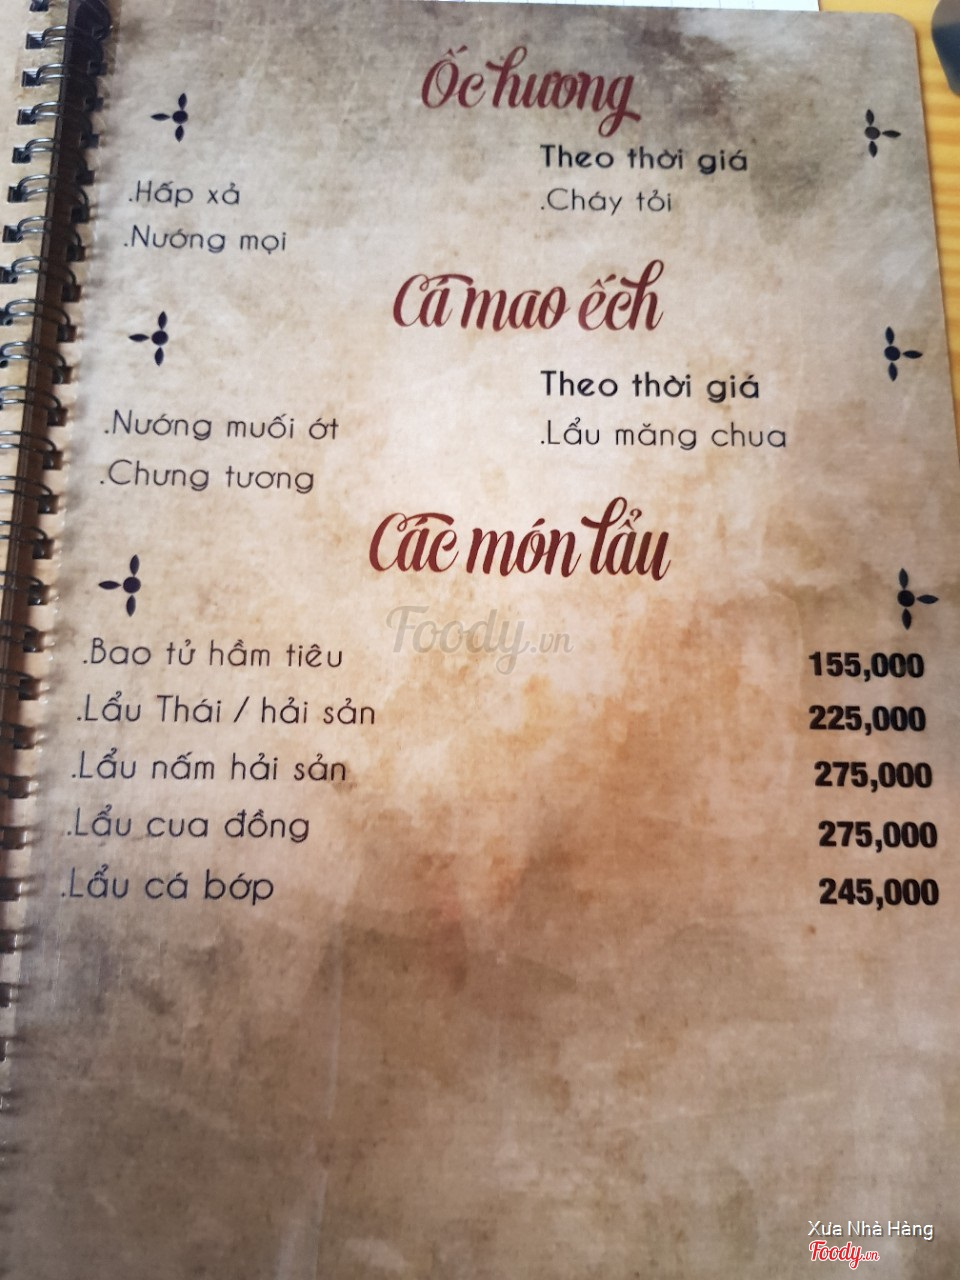 Ốc hương
Theo thời giá
.Hấp xả
.Cháy tỏi
.Nướng mọi
Cá mao ếch
Theo thời giá
.Nướng muối ớt
.Lẩu măng chua
.Chưng tương
Các món lẩu
Foody.vn
.Bao tử hầm tiêu 155,000
.Lẩu Thái / hải sản 225,000
.Lẩu nấm hải sản 275,000
.Lẩu cua đồng 275,000
.Lẩu cá bớp 245,000
Xưa Nhà Hàng
Foody.vn